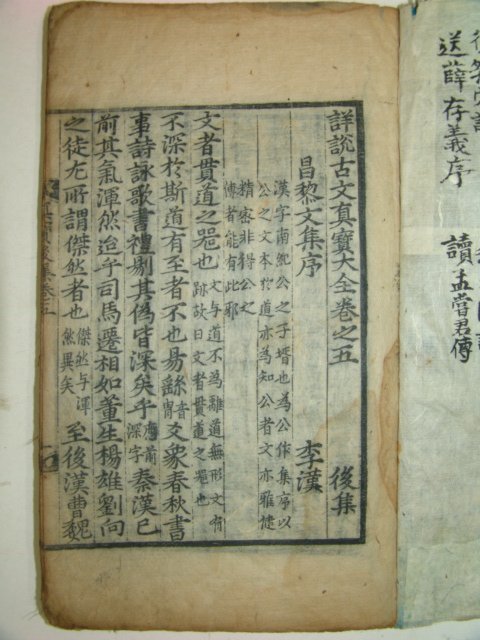 送薛存義序
讀孟嘗君傳
詳說古文真寶大全卷之五 後集
昌黎文集序 李漢
漢字南紀公之子壻也為公作集序以
公之文本於道亦為知公者文亦雅健
精密非得公之
傳者能有此邪
文者貫道之器也 文与道不為離道無形文有跡故曰文者貫道之器也
不深於斯道有至者不也易繇音胄爻象春秋書
事詩詠歌書禮剔其偽皆深矣乎應前深字秦漢已
前其氣渾然迨乎司馬遷相如董生楊雄劉向
之徒尤所謂傑然者也 傑然与渾然異矣 至後漢曹魏